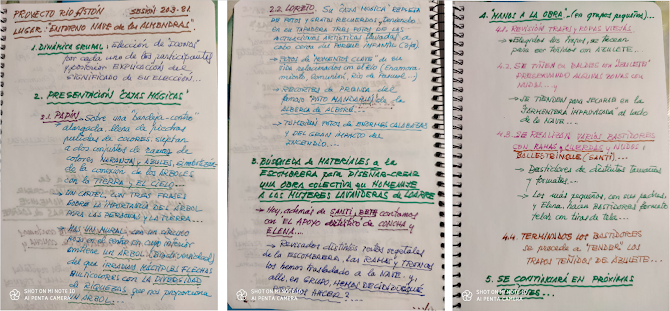 PROYECTO RÍO GISTÓN SESIÓN 20.3.21
LUGAR: "ENTORNO NAVE DE LAS ALMENDRAS"
1. DINÁMICA GRUPAL: elección de "ICONOS"
por cada uno de los participantes
y posterior EXPLICACIÓN del
SIGNIFICADO de su elección...
2. PRESENTACIÓN "CAJAS MÁGICAS"
2.1. PADÍN. Sobre una "bandeja-cartón"
alargada, llena de piedras
pintadas de colores,
a dos conjuntos de ramas de
colores NARANJA y AZULES,
de la conexión de los ÁRBOLES
con la TIERRA y EL CIELO...
UN CARTEL con TRES FRASES
SOBRE LA IMPORTANCIA DEL ÁRBOL
PARA LAS PERSONAS Y LA TIERRA...
HAY UN MURAL con un círculo
en el centro en cuyo interior
un ÁRBOL
del que IRRADIAN MÚLTIPLES FLECHAS
MULTICOLORES con la DIVERSIDAD
de RIQUEZAS que nos proporciona
UN ÁRBOL...
2.2. LORETO. Su CAJA MÁGICA repleta
de FOTOS y GRATOS RECUERDOS,
en su TAPADERA TRES FOTOS DE LAS
ACTUACIONES ARTÍSTICAS llevadas a
cabo como las PIEDRAS INFANTILES (OJO)
FOTOS de "MOMENTOS CLAVE" de su
vida relacionados con el Río
RECORTES DE PRENSA del
"PATO MANDARÍN" de la
ALBERCA DE ALBORÉ...
TAMBIÉN FOTOS DE ENORMES CALABAZAS
Y DEL GRAN IMPACTO del
INCENDIO...
3. BÚSQUEDA de MATERIALES a la
ESCOMBRERA para DISEÑAR-CREAR
UNA OBRA COLECTIVA en HOMENAJE
A LAS MUJERES LAVANDERAS DE LOARRE
Hoy, además de SANTI, BEA contamos
con EL APOYO de CONCHA y
ELENA...
Revisados distintos restos vegetales
de la ESCOMBRERA, LAS RAMAS Y TRONCOS
los hemos trasladado a LA NAVE... Y
allí, en GRUPO, HEMOS DECIDIDO QUÉ
PODEMOS HACER?
4. "MANOS A LA OBRA". (en grupos pequeños)...
4.1. REVISIÓN TRAPOS y ROPAS VIEJAS
Elegidos los trapos, se
para ser teñidos con AZULETE...
4.2. SE TIÑEN en BALDES con "AZULETE"
PREVIAMENTE algunas zonas con
NUDOS... y
SE TIENDEN para SECARLO EN LA
IMPROVISADA al lado
de la NAVE...
4.3. SE REALIZAN VARIOS BASTIDORES
CON RAMAS y CUERDAS y NUDOS
BALLESTRINQUE (SANTI)...
Bastidores de distintos tamaños
y formatos...
Los más pequeños, con sus padres
y Elena, hacen BASTIDORES FORMATO
telas con tiras de telas...
4.4. TERMINADOS LOS BASTIDORES
se procede a TENDER LOS
TRAPOS TEÑIDOS DE AZULETE...
5. SE CONTINUARÁ EN PRÓXIMAS
SESIONES...
SHOT ON MI NOTE 10
AI PENTA CAMERA
SHOT ON MI NOTE 10
AI PENTA CAMERA
SHOT ON MI NOTE 10
AI PENTA CAMERA